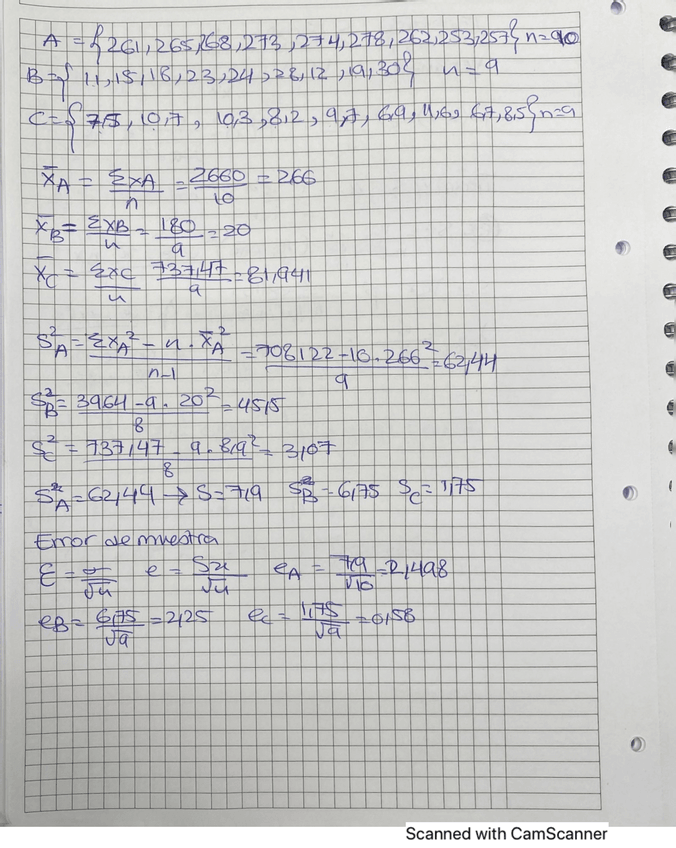 A = {261, 265, 268, 273, 274, 278, 262, 253, 257} n=10
B={ 11, 15, 18, 23, 24, 28, 12, 19, 30} n = 9
C={ 7,5, 10,7, 10,3, 8,2, 9,7, 6,9, 11,6, 6,7, 8,5} n=9
X̄A = ΣxA/n = 2660/10 = 266
X̄B = ΣxB/n = 180/9 = 20
X̄C = ΣxC/n 737,47/9 = 81,941
S²A = (ΣxA² - n · X̄A²)/(n-1) = (708122 - 10 · 266²)/9 = 62,44
S²B = (3964 - 9 · 20²)/8 = 45,5
Sc² = (737,47 - 9 · 8,9²)/8 = 3,07
S²A = 62,44 → S = 7,9 SB = 6,75 Sc = 1,75
Error de muestra
Ɛ = σ/√n e = Sx/√n eA = 7,9/√10 = 2,498
eB = 6,75/√9 = 2,25 ec = 1,75/√9 = 0,58
Scanned with CamScanner